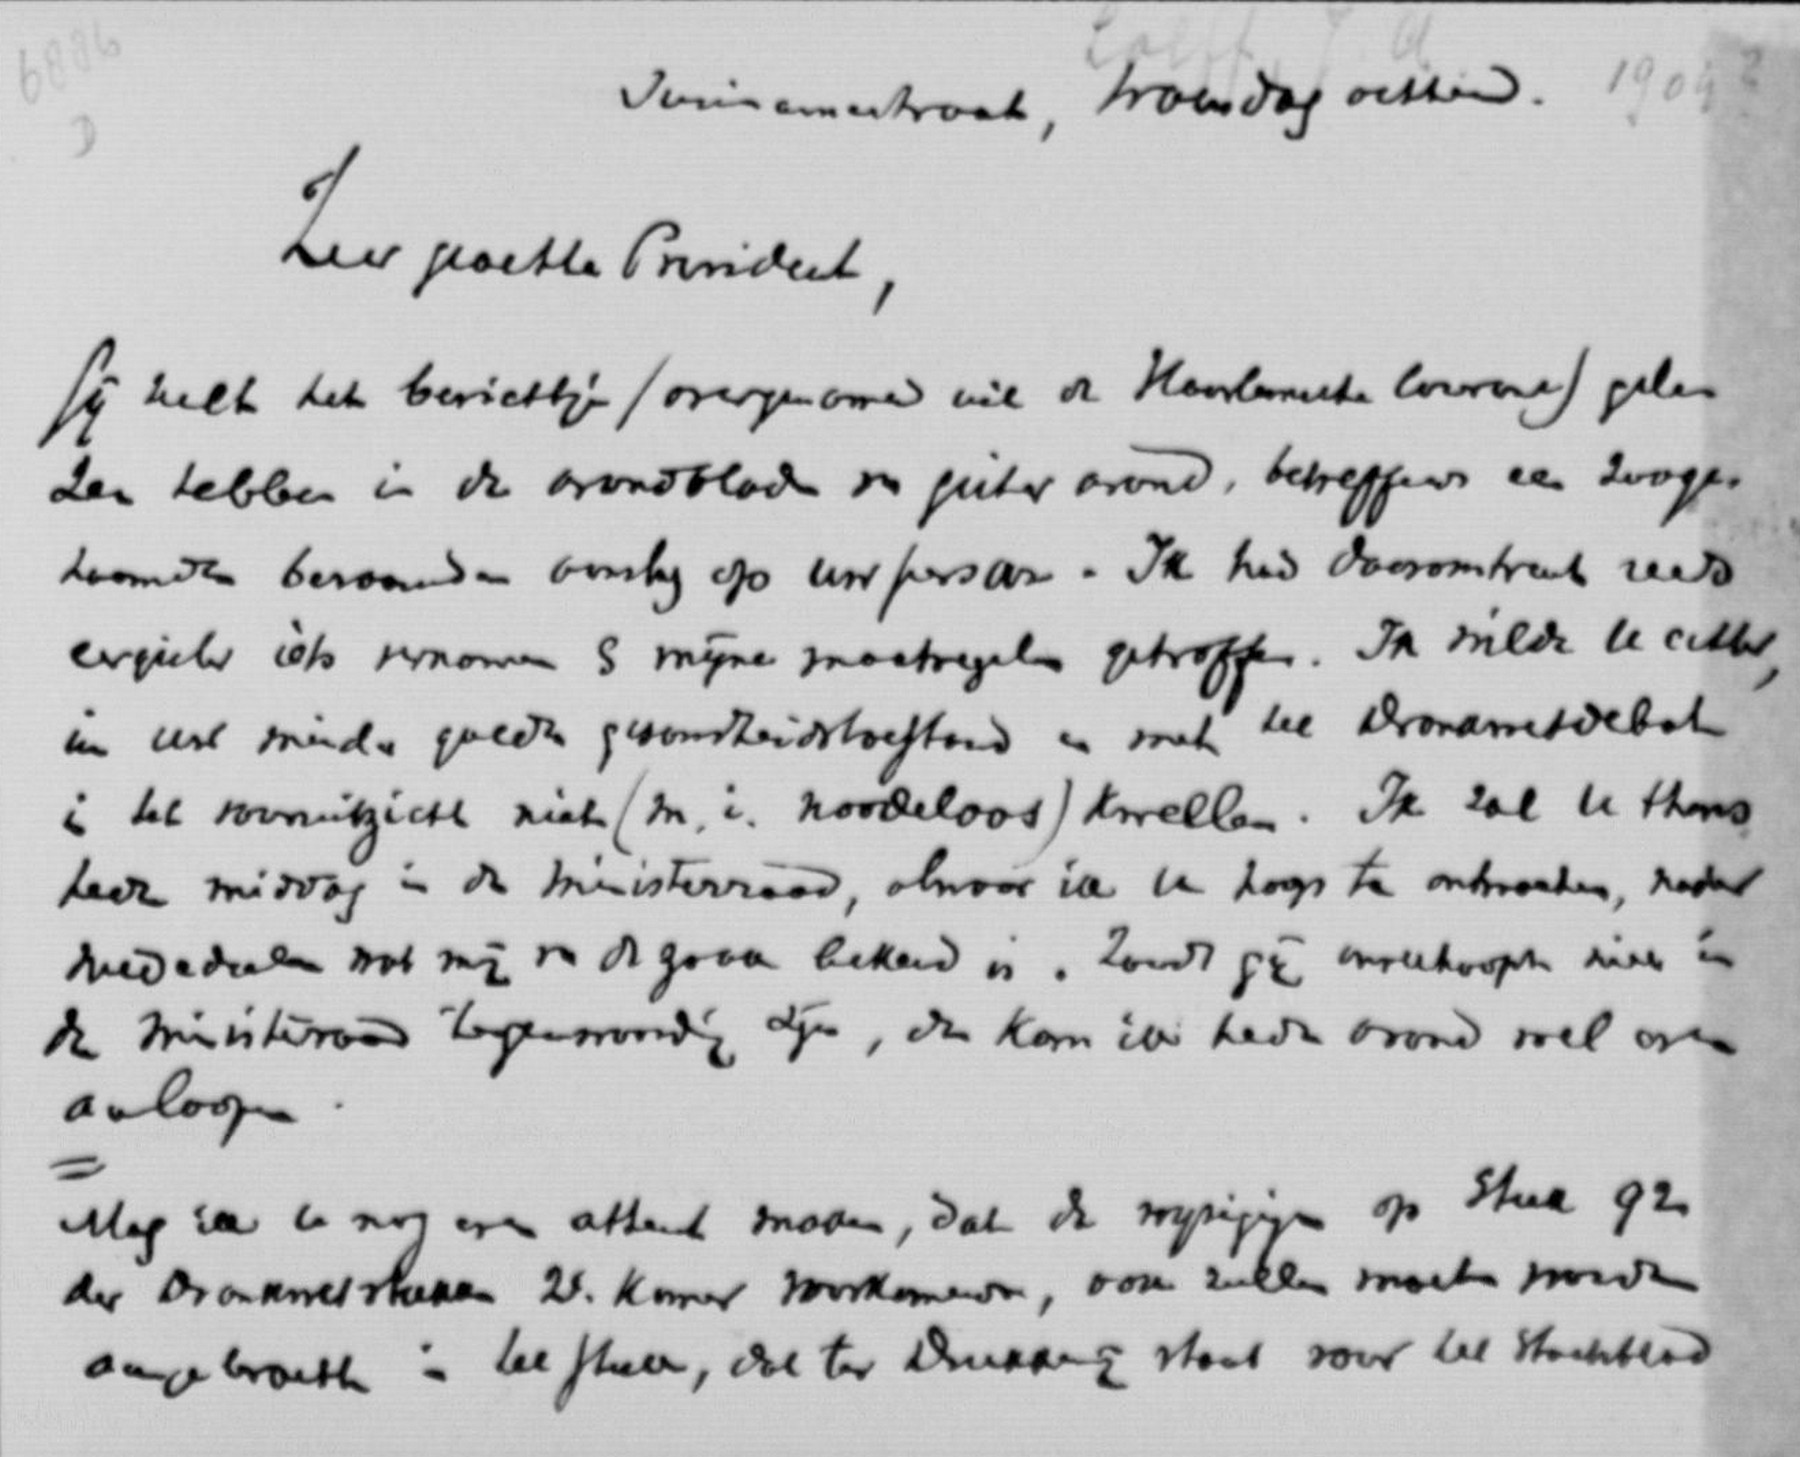 6886
D
Loeff, J. A.
1904?
Surinamestraat, woensdag ochtend.
Zeer geachte President,
Gij hebt het berichtje (overgenomen uit de Haarlemsche Courant) gele-
zen hebben in de avondbladen van gister avond, betreffende een zooge-
naamden beraamden aanslag op uw persoon. Ik had daaromtrent reeds
eergister iets vernomen & mijne maatregelen getroffen. Ik wilde U echter,
in uw minder goeden gezondheidstoestand en met het Drankwetdebat
in het vooruitzicht niet (m. i. noodeloos) kwellen. Ik zal U thans
heden middag in de Ministerraad, alwaar ik U hoop te ontmoeten, nader
mededeelen wat mij van de zaak bekend is. Zoudt gij onverhoopt niet in
de Ministerraad tegenwoordig zijn, dan kom ik heden avond wel even
aanloopen.
=
Mag ik U nog even attent maken, dat de wijzigingen op Stuk 92
der Drankwetstukken 2e. Kamer voorkomende, ook zullen moeten worden
aangebracht in het stuk, dat ter Drukkerij staat voor het Staatsblad